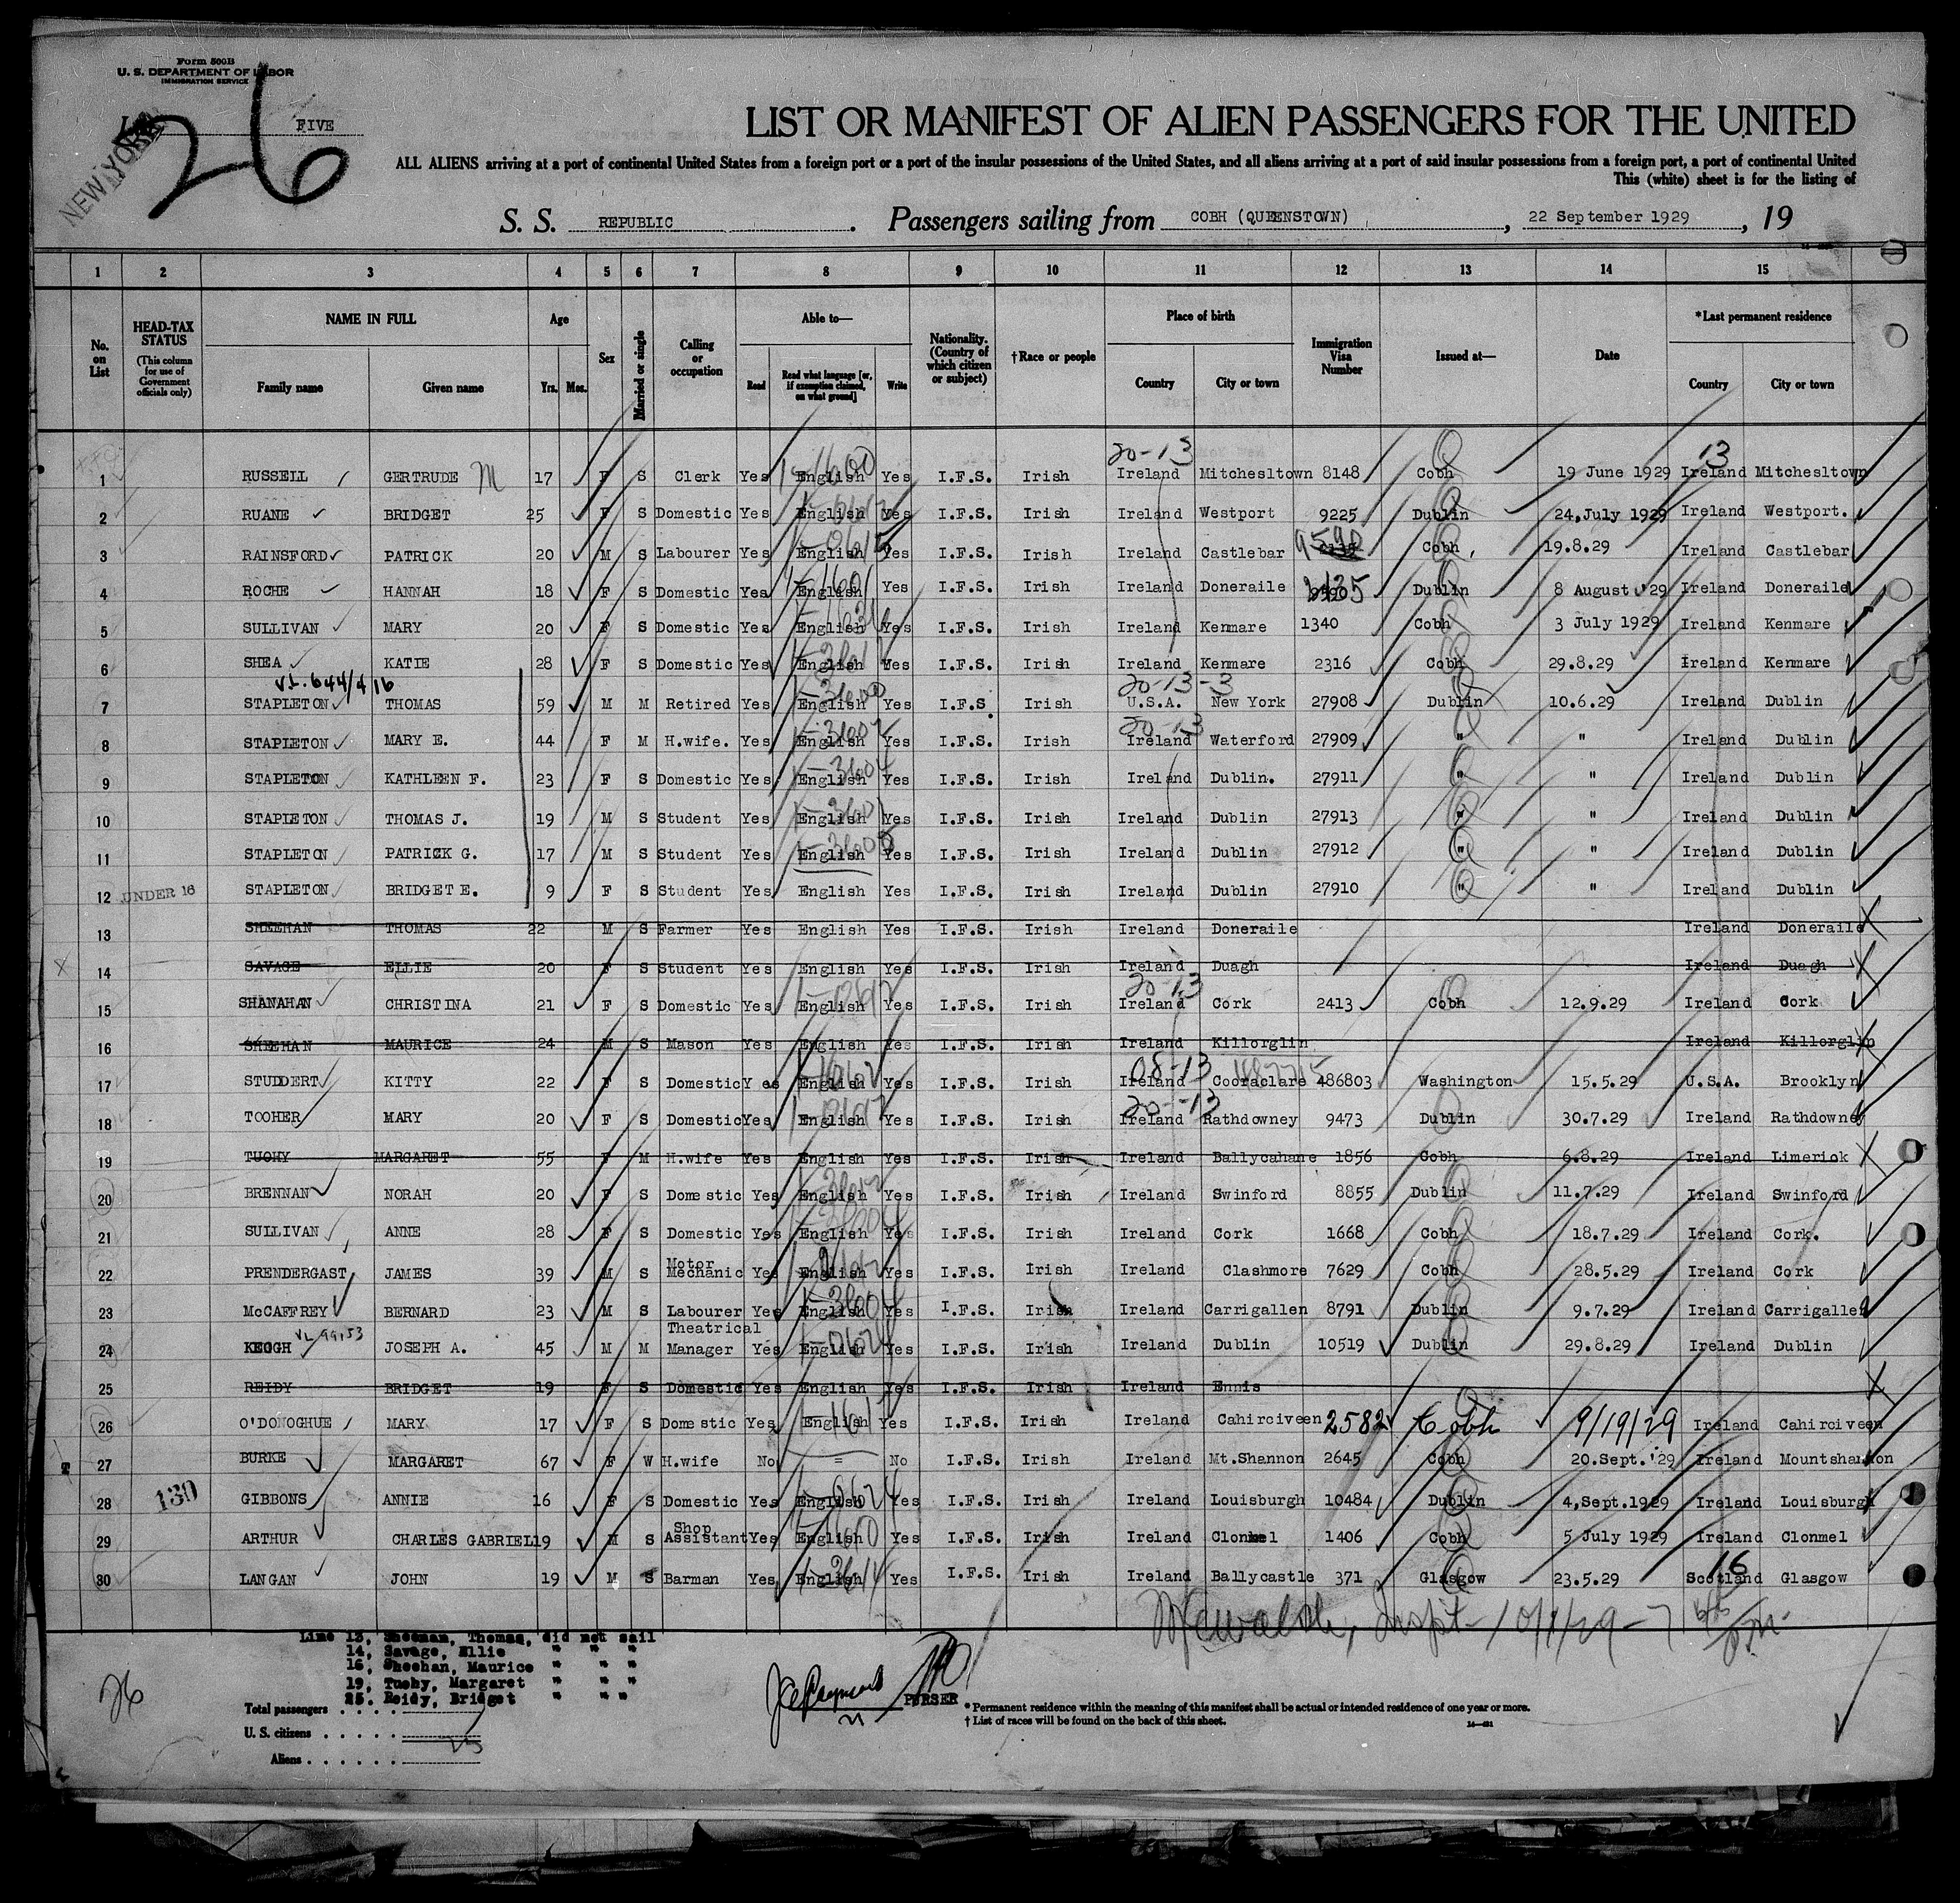 Form 500B
U. S. DEPARTMENT OF LABOR
IMMIGRATION SERVICE
FIVE
NEW YORK
26
LIST OR MANIFEST OF ALIEN PASSENGERS FOR THE UNITED
ALL ALIENS arriving at a port of continental United States from a foreign port or a port of the insular possessions of the United States, and all aliens arriving at a port of said insular possessions from a foreign port, a port of continental United
This (white) sheet is for the listing of
S. S. REPUBLIC . Passengers sailing from COBH (QUEENSTOWN) , 22 September 1929 , 19
1 2 3 4 5 6 7 8 9 10 11 12 13 14 15
No. on List HEAD-TAX STATUS (This column for use of Government officials only) NAME IN FULL Family name Given name Age Yrs. Mos. Sex Married or single Calling or occupation Able to— Read Read what language [or, if exemption claimed, on what ground] Write Nationality. (Country of which citizen or subject) †Race or people Place of birth Country City or town Immigration Visa Number Issued at— Date *Last permanent residence Country City or town
20-13 13
1 RUSSELL GERTRUDE M 17 F S Clerk Yes English Yes I.F.S. Irish Ireland Mitchesltown 8148 Cobh 19 June 1929 Ireland Mitchesltown
2 RUANE BRIDGET 25 F S Domestic Yes English Yes I.F.S. Irish Ireland Westport 9225 Dublin 24,July 1929 Ireland Westport.
3 RAINSFORD PATRICK 20 M S Labourer Yes English Yes I.F.S. Irish Ireland Castlebar 9590 Cobh 19.8.29 Ireland Castlebar
4 ROCHE HANNAH 18 F S Domestic Yes English Yes I.F.S. Irish Ireland Doneraile Dublin 8 August '29 Ireland Doneraile
5 SULLIVAN MARY 20 F S Domestic Yes English Yes I.F.S. Irish Ireland Kenmare 1340 Cobh 3 July 1929 Ireland Kenmare
6 SHEA KATIE 28 F S Domestic Yes English Yes I.F.S. Irish Ireland Kenmare 2316 Cobh 29.8.29 Ireland Kenmare
20-13-3
7 STAPLETON THOMAS 59 M M Retired Yes English Yes I.F.S Irish U.S.A. New York 27908 Dublin 10.6.29 Ireland Dublin
20-13
8 STAPLETON MARY E. 44 F M H.wife. Yes English Yes I.F.S. Irish Ireland Waterford 27909 " " Ireland Dublin
9 STAPLETON KATHLEEN F. 23 F S Domestic Yes English Yes I.F.S. Irish Ireland Dublin. 27911 " " Ireland Dublin
10 STAPLETON THOMAS J. 19 M S Student Yes English Yes I.F.S. Irish Ireland Dublin 27913 " " Ireland Dublin
11 STAPLETON PATRICK G. 17 M S Student Yes English Yes I.F.S. Irish Ireland Dublin 27912 " " Ireland Dublin
12 UNDER 16 STAPLETON BRIDGET E. 9 F S Student Yes English Yes I.F.S. Irish Ireland Dublin 27910 " " Ireland Dublin
13 SHEEHAN THOMAS 22 M S Farmer Yes English Yes I.F.S. Irish Ireland Doneraile Ireland Doneraile
14 SAVAGE ELLIE 20 F S Student Yes English Yes I.F.S. Irish Ireland Duagh Ireland Duagh
20-13
15 SHANAHAN CHRISTINA 21 F S Domestic Yes English Yes I.F.S. Irish Ireland Cork 2413 Cobh 12.9.29 Ireland Cork
16 SHEEHAN MAURICE 24 M S Mason Yes English Yes I.F.S. Irish Ireland Killorglin Ireland Killorglin
08-13
17 STUDDERT KITTY 22 F S Domestic Yes English Yes I.F.S. Irish Ireland Cooraclare 486803 Washington 15.5.29 U.S.A. Brooklyn
20-13
18 TOOHER MARY 20 F S Domestic Yes English Yes I.F.S. Irish Ireland Rathdowney 9473 Dublin 30.7.29 Ireland Rathdowney
19 TUOHY MARGARET 55 F M H.wife Yes English Yes I.F.S. Irish Ireland Ballycahane 1856 Cobh 6.8.29 Ireland Limerick
20 BRENNAN NORAH 20 F S Domestic Yes English Yes I.F.S. Irish Ireland Swinford 8855 Dublin 11.7.29 Ireland Swinford
21 SULLIVAN ANNE 28 F S Domestic Yes English Yes I.F.S. Irish Ireland Cork 1668 Cobh 18.7.29 Ireland Cork.
22 PRENDERGAST JAMES 39 M S Motor Mechanic Yes English Yes I.F.S. Irish Ireland Clashmore 7629 Cobh 28.5.29 Ireland Cork
23 McCAFFREY BERNARD 23 M S Labourer Yes English Yes I.F.S. Irish Ireland Carrigallen 8791 Dublin 9.7.29 Ireland Carrigallen
24 KEOGH JOSEPH A. 45 M M Theatrical Manager Yes English Yes I.F.S. Irish Ireland Dublin 10519 Dublin 29.8.29 Ireland Dublin
25 REIDY BRIDGET 19 F S Domestic Yes English Yes I.F.S. Irish Ireland Ennis
26 O'DONOGHUE MARY 17 F S Domestic Yes English Yes I.F.S. Irish Ireland Cahirciveen 2582 Cobh 9/19/29 Ireland Cahirciveen
27 BURKE MARGARET 67 F W H.wife No = No I.F.S. Irish Ireland Mt.Shannon 2645 Cobh 20.Sept.'29 Ireland Mountshannon
28 130 GIBBONS ANNIE 16 F S Domestic Yes English Yes I.F.S. Irish Ireland Louisburgh 10484 Dublin 4,Sept.1929 Ireland Louisburgh
29 ARTHUR CHARLES GABRIEL 19 M S Shop Assistant Yes English Yes I.F.S. Irish Ireland Clonmel 1406 Cobh 5 July 1929 Ireland Clonmel
16
30 LANGAN JOHN 19 M S Barman Yes English Yes I.F.S. Irish Ireland Ballycastle 371 Glasgow 23.5.29 Scotland Glasgow
Line 13, Sheehan, Thomas, did not sail
14, Savage, Ellie " " "
16, Sheehan, Maurice " " "
19, Tuohy, Margaret " " "
25. Reidy, Bridget " " "
26
Total passengers
U. S. citizens
Aliens
25
PURSER
* Permanent residence within the meaning of this manifest shall be actual or intended residence of one year or more.
† List of races will be found on the back of this sheet.